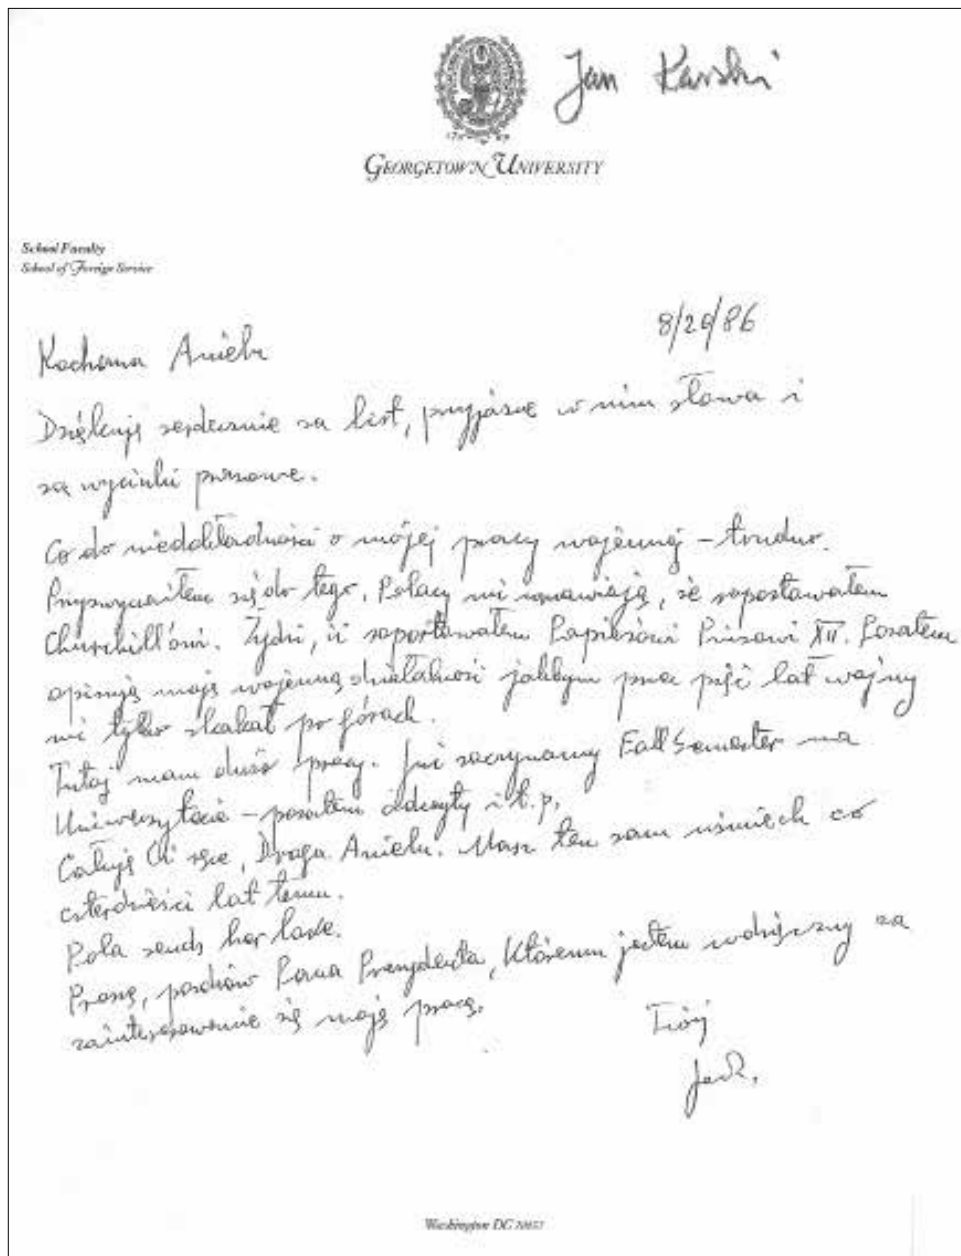 Jan Karski
GEORGETOWN UNIVERSITY
School Faculty
School of Foreign Service
8/29/86
Kochana Anielu
Dziękuję serdecznie za list, przyjazne w nim słowa i
za wycinki prasowe.
Co do niedokładności o mojej pracy wojennej – trudno.
Przyzwyczaiłem się do tego. Polacy mi wmawiają, że raportowałem
Churchill'owi. Żydzi, iż raportowałem Papieżowi Piusowi XII. Pozatem
opisują moją wojenną działalność jakbym przez pięć lat wojny
nic tylko skakał po górach.
Tutaj mam dużo pracy. Już zaczynamy Fall Semester na
Uniwersytecie – pozatem odczyty i t.p.
Całuję Ci ręce, Droga Anielu. Masz ten sam uśmiech co
czterdzieści lat temu.
Pola sends her love.
Proszę, pozdrów Pana Prezydenta, któremu jestem wdzięczny za
zainteresowanie się moją pracą.
Twój
Washington DC 20057